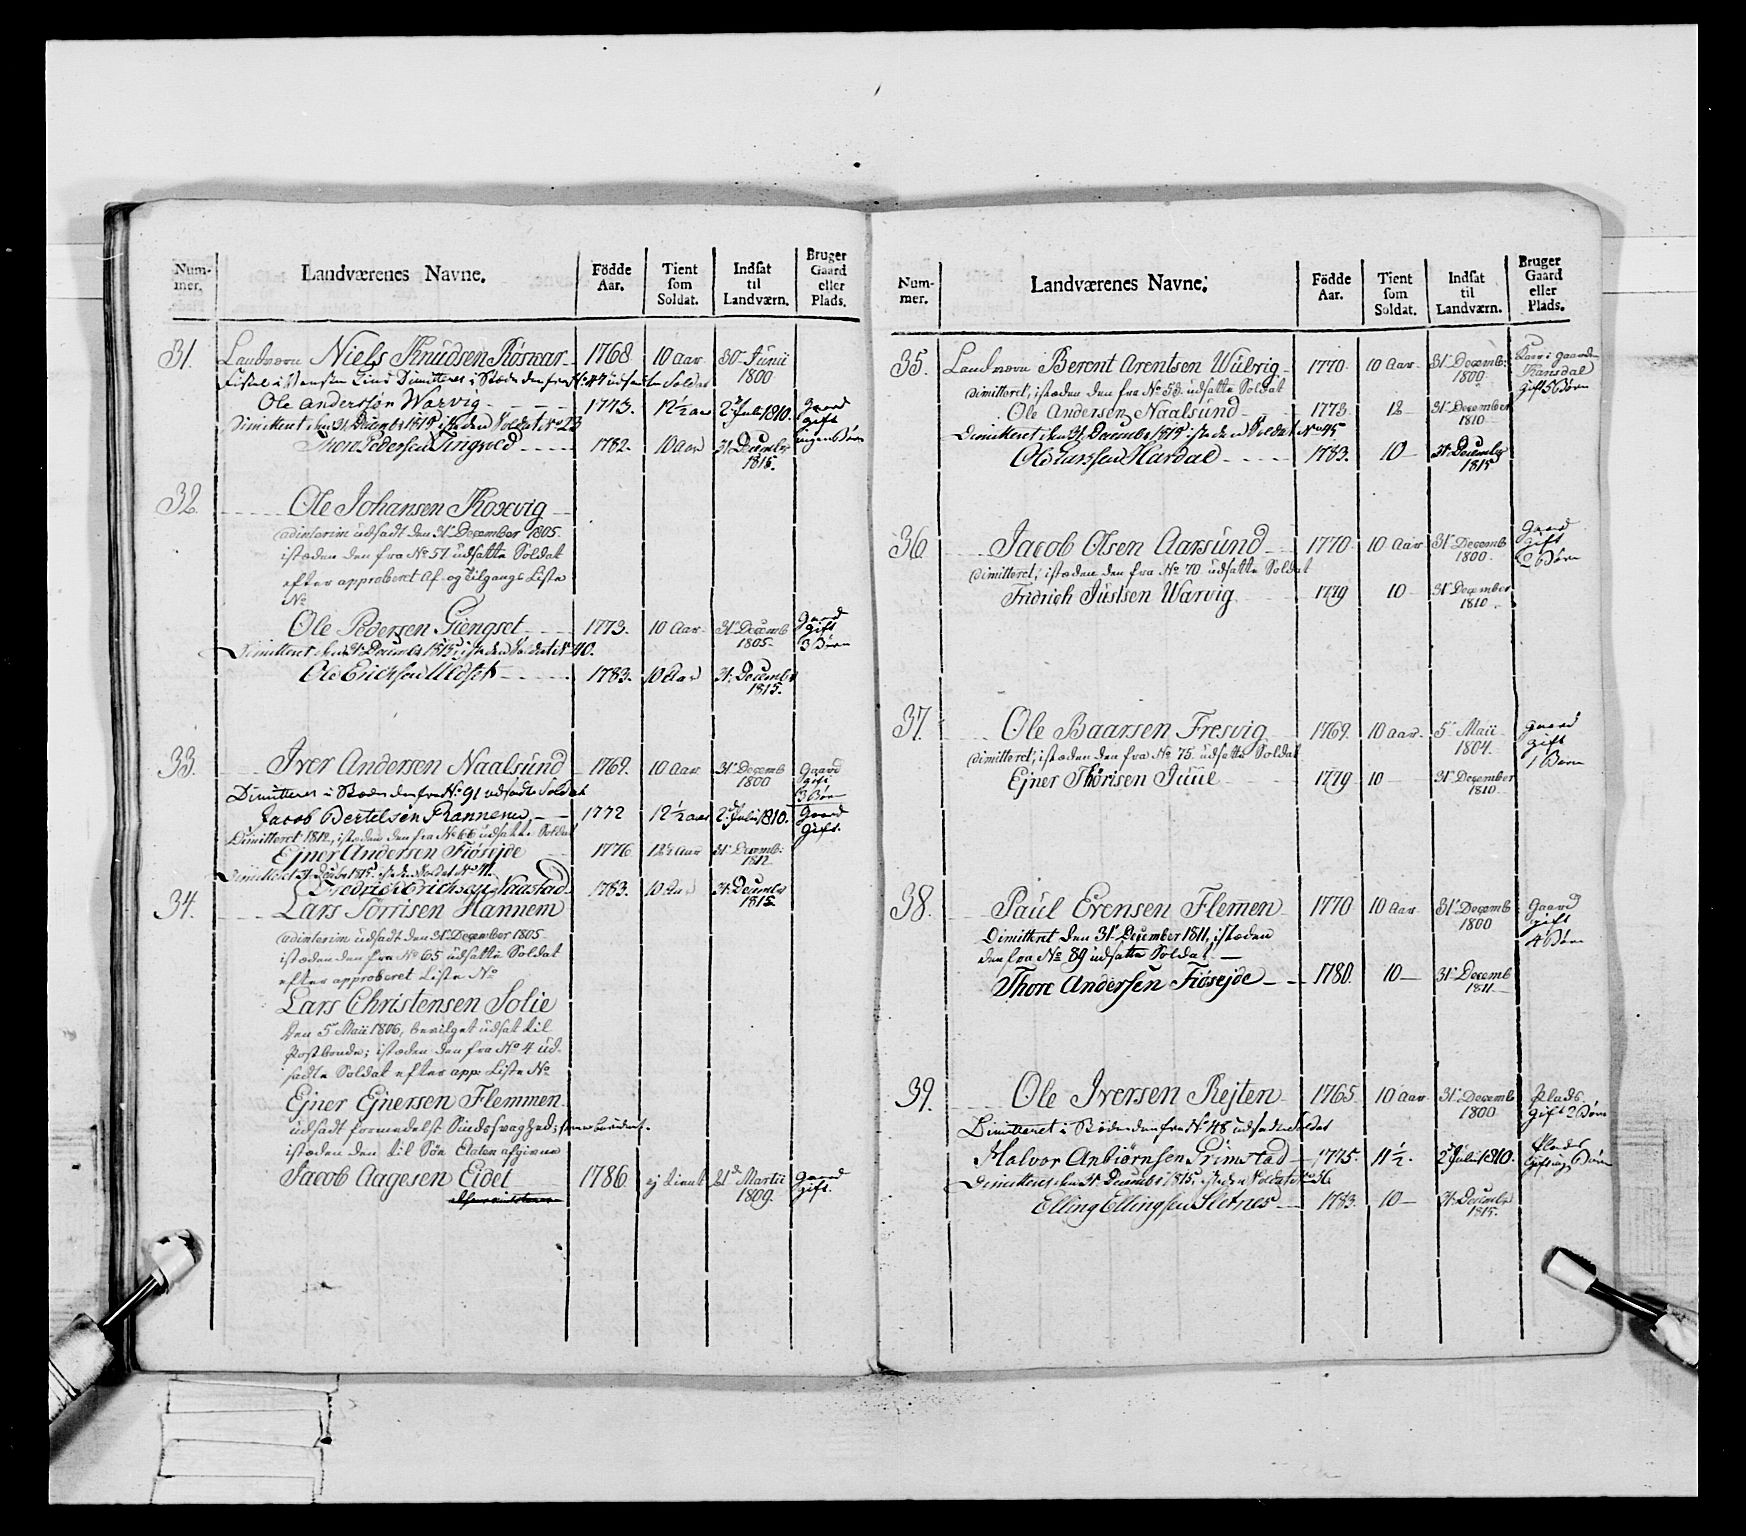 Num-
mer.
Landværenes Navne.
Födde
Aar.
Tient
som
Soldat.
Indsat
til
Landværn.
Bruger
Gaard
eller
Plads.
31. Landværn Niels Knudsen Roswar 1768 10 Aar 30 Junii
1800
Dimitteret i Stæden den fra No 47 udsatte Soldat
Ole Andersson Warvig 1773. 12½ aar 2d Juli 1810. Gaard
gift
ingen Børn
Dimitteret den 31 Decembr 1815 isteden Soldat No 23
Thore Pedersen Tingvold 1782. 10 Aar 31 Decembr
1815.
32. Ole Johansen Thoxvig
adinterim udsadt den 31 December 1805
istæden den fra No 51 udsatte Soldat
efter approberet Af- og Tilgangs Liste
No
Ole Pedersen Giengset 1773. 10 Aar 31 Decemb
1805. Gaard
gift
3 Børn
Dimitteret den 31 Decembr 1815 isteden Soldat No 40.
Ole Erichsen Uldset 1783. 10 Aar 31 Decembr
1815.
33. Iver Andersen Naalsund 1769. 10 Aar 31 Decemb
1800 Gaard
gift
3 Børn
Dimitteret i Stæden den fra No 91 udsadte Soldat
Jacob Bertelsen 1772 12½ aar 2d Juli 1810. Gaard
Gift.
Dimitteret 1812, istæden den fra No 66 udsatte Soldat
Ejner Andersen Fiøsejde 1776 12½ Aar 31 Decemb:
1812
Dimitteret 31 Decbr 1815 isteden Soldat No 111.
Fredric Erichsen Naastad 1783. 10 Aar 31 Decembr
1815
34. Lars Torrisen Hannem
adinterim udsadt den 31 December 1805
istæden den fra No 65 udsatte Soldat
efter approberet Liste No
Lars Christensen Solie
den 5 Maii 1806, bevilget udsat til
Postbonde; istæden den fra No 4 ud-
sadte Soldat efter app: Liste No
Ejner Ejnersen Flemmen
udsadt formedelst Sindssvaghed;
istæden den til Søe Etaten afgivne
Jacob Aagesen Eidet 1786 ej tient 21d Martii
1809. Gaard
gift.
Num-
mer.
Landværenes Navne.
Födde
Aar.
Tient
som
Soldat.
Indsat
til
Landværn.
Bruger
Gaard
eller
Plads.
35. Landværn Berent Arentsen Wulvig 1770 10 Aar 31 Decemb:
1800. Gaarden
gift 5 Børn
dimitteret, istæden den fra No 53. udsatte Soldat
Ole Andersen Naalsund 1773 12 31 December
1810
Dimitteret den 31 Decembr 1815 isteden Soldat No 45
Ole Larssen Hardal 1783. 10 31 Decembr
1815
36. Jacob Olsen Aarsund 1770 10 Aar 31 Decemb
1800. Gaard
gift
2 Børn
dimitteret, istæden den fra No 70. udsatte Soldat
Fridrich Justsen Warvig 1779 10 31 December
1810
37. Ole Baarsen Fresvig 1769. 10 Aar. 5 Maii
1804. Gaard
gift
1 Barn
dimitteret, istæden den fra No 75. udsatte Soldat
Ejner Thorisen Juul 1779 10 31 December
1810
38. Paul Evensen Flemen 1770 10 Aar 31 Decemb
1800 Gaard
gift
4 Børn
Dimitteret den 31 December 1811, istæden
den fra No 89 udsatte Soldat.
Thore Andersen Fiøsejde 1780. 10 31 Decemb
1811.
39. Ole Iversen Rejten 1765 10 Aar 31 Decemb
1800 Plads.
gift 2 Børn
Dimitteret i Stæden den fra No 48 udsadte Soldat
Halvor Anbiørnsen Grimstad 1775 11½. 2d Juli 1810. Plads
gift ing Børn
Dimitteret den 31 Decembr 1815, isteden Soldat No
Elling Ellingsen Sletnes 1783. 10 31 Decembr
1815.